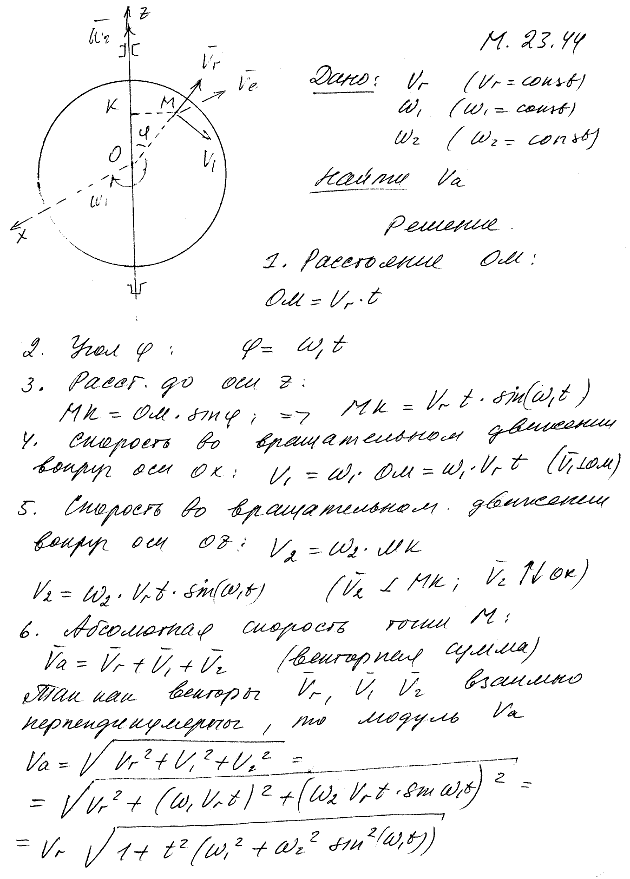 z
ω̄₂
V̄r
V̄e
М. 23.44
К
М
Дано: Vr (Vr = const)
φ
ω₁ (ω₁ = const)
О
V̄₁
ω₂ (ω₂ = const)
ω̄₁
Найти Va
x
Решение.
1. Расстояние ОМ:
ОМ = Vr · t
2. Угол φ: φ = ω₁t
3. Расст. до оси z:
МК = ОМ · sinφ; => МК = Vr t · sin(ω₁t)
4. Скорость во вращательном движении
вокруг оси ОХ: V₁ = ω₁ · ОМ = ω₁ · Vr t (V̄₁ ⊥ ОМ)
5. Скорость во вращательном. движении
вокруг оси OZ: V₂ = ω₂ · МК
V₂ = ω₂ · Vr t · sin(ω₁t) (V̄₂ ⊥ МК; V̄₂ ↑↓ ОХ)
6. Абсолютная скорость точки М:
V̄a = V̄r + V̄₁ + V̄₂ (векторная сумма)
Так как векторы V̄r, V̄₁ V̄₂ взаимно
перпендикулярны, то модуль Va
Va = √(Vr² + V₁² + V₂²) =
= √(Vr² + (ω₁ Vr t)² + (ω₂ Vr t · sin ω₁t)²) =
= Vr √(1 + t² (ω₁² + ω₂² sin²(ω₁t)))